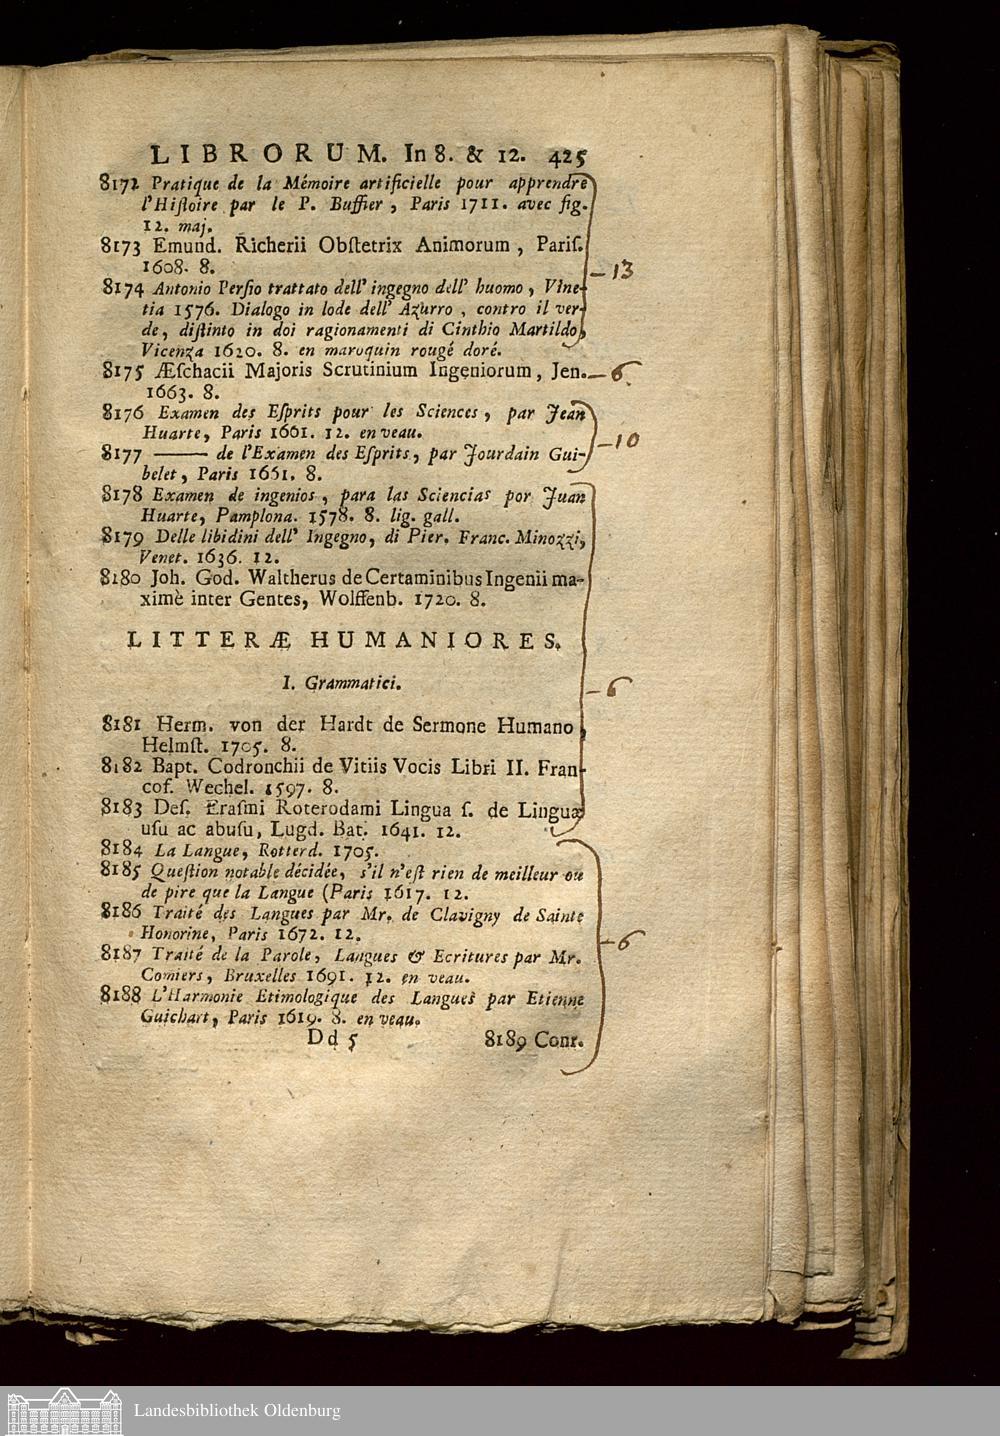 LIBRORUM. In 8. & 12. 425
8172 Pratique de la Mémoire artificielle pour apprendre
l'Hiſtoire par le P. Buffier, Paris 1711. avec fig.
12. maj.
8173 Emund. Richerii Obſtetrix Animorum, Pariſ.
1608. 8.
- 13
8174 Antonio Perſio trattato dell' ingegno dell' huomo, Vine-
tia 1576. Dialogo in lode dell' Azurro, contro il ver-
de, diſtinto in doi ragionamenti di Cinthio Martildo,
Vicenza 1620. 8. en maroquin rougé doré.
8175 Æſchacii Majoris Scrutinium Ingeniorum, Jen. - 6
1663. 8.
8176 Examen des Eſprits pour les Sciences, par Jean
Huarte, Paris 1661. 12. en veau.
- 10
8177 —— de l'Examen des Eſprits, par Jourdain Gui-
belet, Paris 1661. 8.
8178 Examen de ingenios, para las Sciencias por Juan
Huarte, Pamplona. 1578. 8. lig. gall.
8179 Delle libidini dell' Ingegno, di Pier. Franc. Minozzi,
Venet. 1636. 12.
8180 Joh. God. Waltherus de Certaminibus Ingenii ma-
ximè inter Gentes, Wolffenb. 1720. 8.
LITTERÆ HUMANIORES.
I. Grammatici.
- 6
8181 Herm. von der Hardt de Sermone Humano,
Helmſt. 1705. 8.
8182 Bapt. Codronchii de Vitiis Vocis Libri II. Fran-
cof. Wechel. 1597. 8.
8183 Deſ. Eraſmi Roterodami Lingua ſ. de Linguæ
uſu ac abuſu, Lugd. Bat. 1641. 12.
8184 La Langue, Rotterd. 1705.
8185 Queſtion notable décidée, s'il n'eſt rien de meilleur ou
de pire que la Langue (Paris 1617. 12.
8186 Traité des Langues par Mr. de Clavigny de Sainte
Honorine, Paris 1672. 12.
- 6
8187 Traité de la Parole, Langues & Ecritures par Mr.
Comiers, Bruxelles 1691. 12. en veau.
8188 L'Harmonie Etimologique des Langues par Etienne
Guichart, Paris 1619. 8. en veau.
Dd 5 8189 Conr.
Landesbibliothek Oldenburg